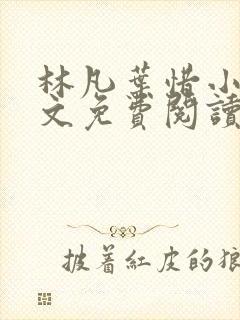 林凡葉惜小
文免費閱讀
披着紅皮的狼